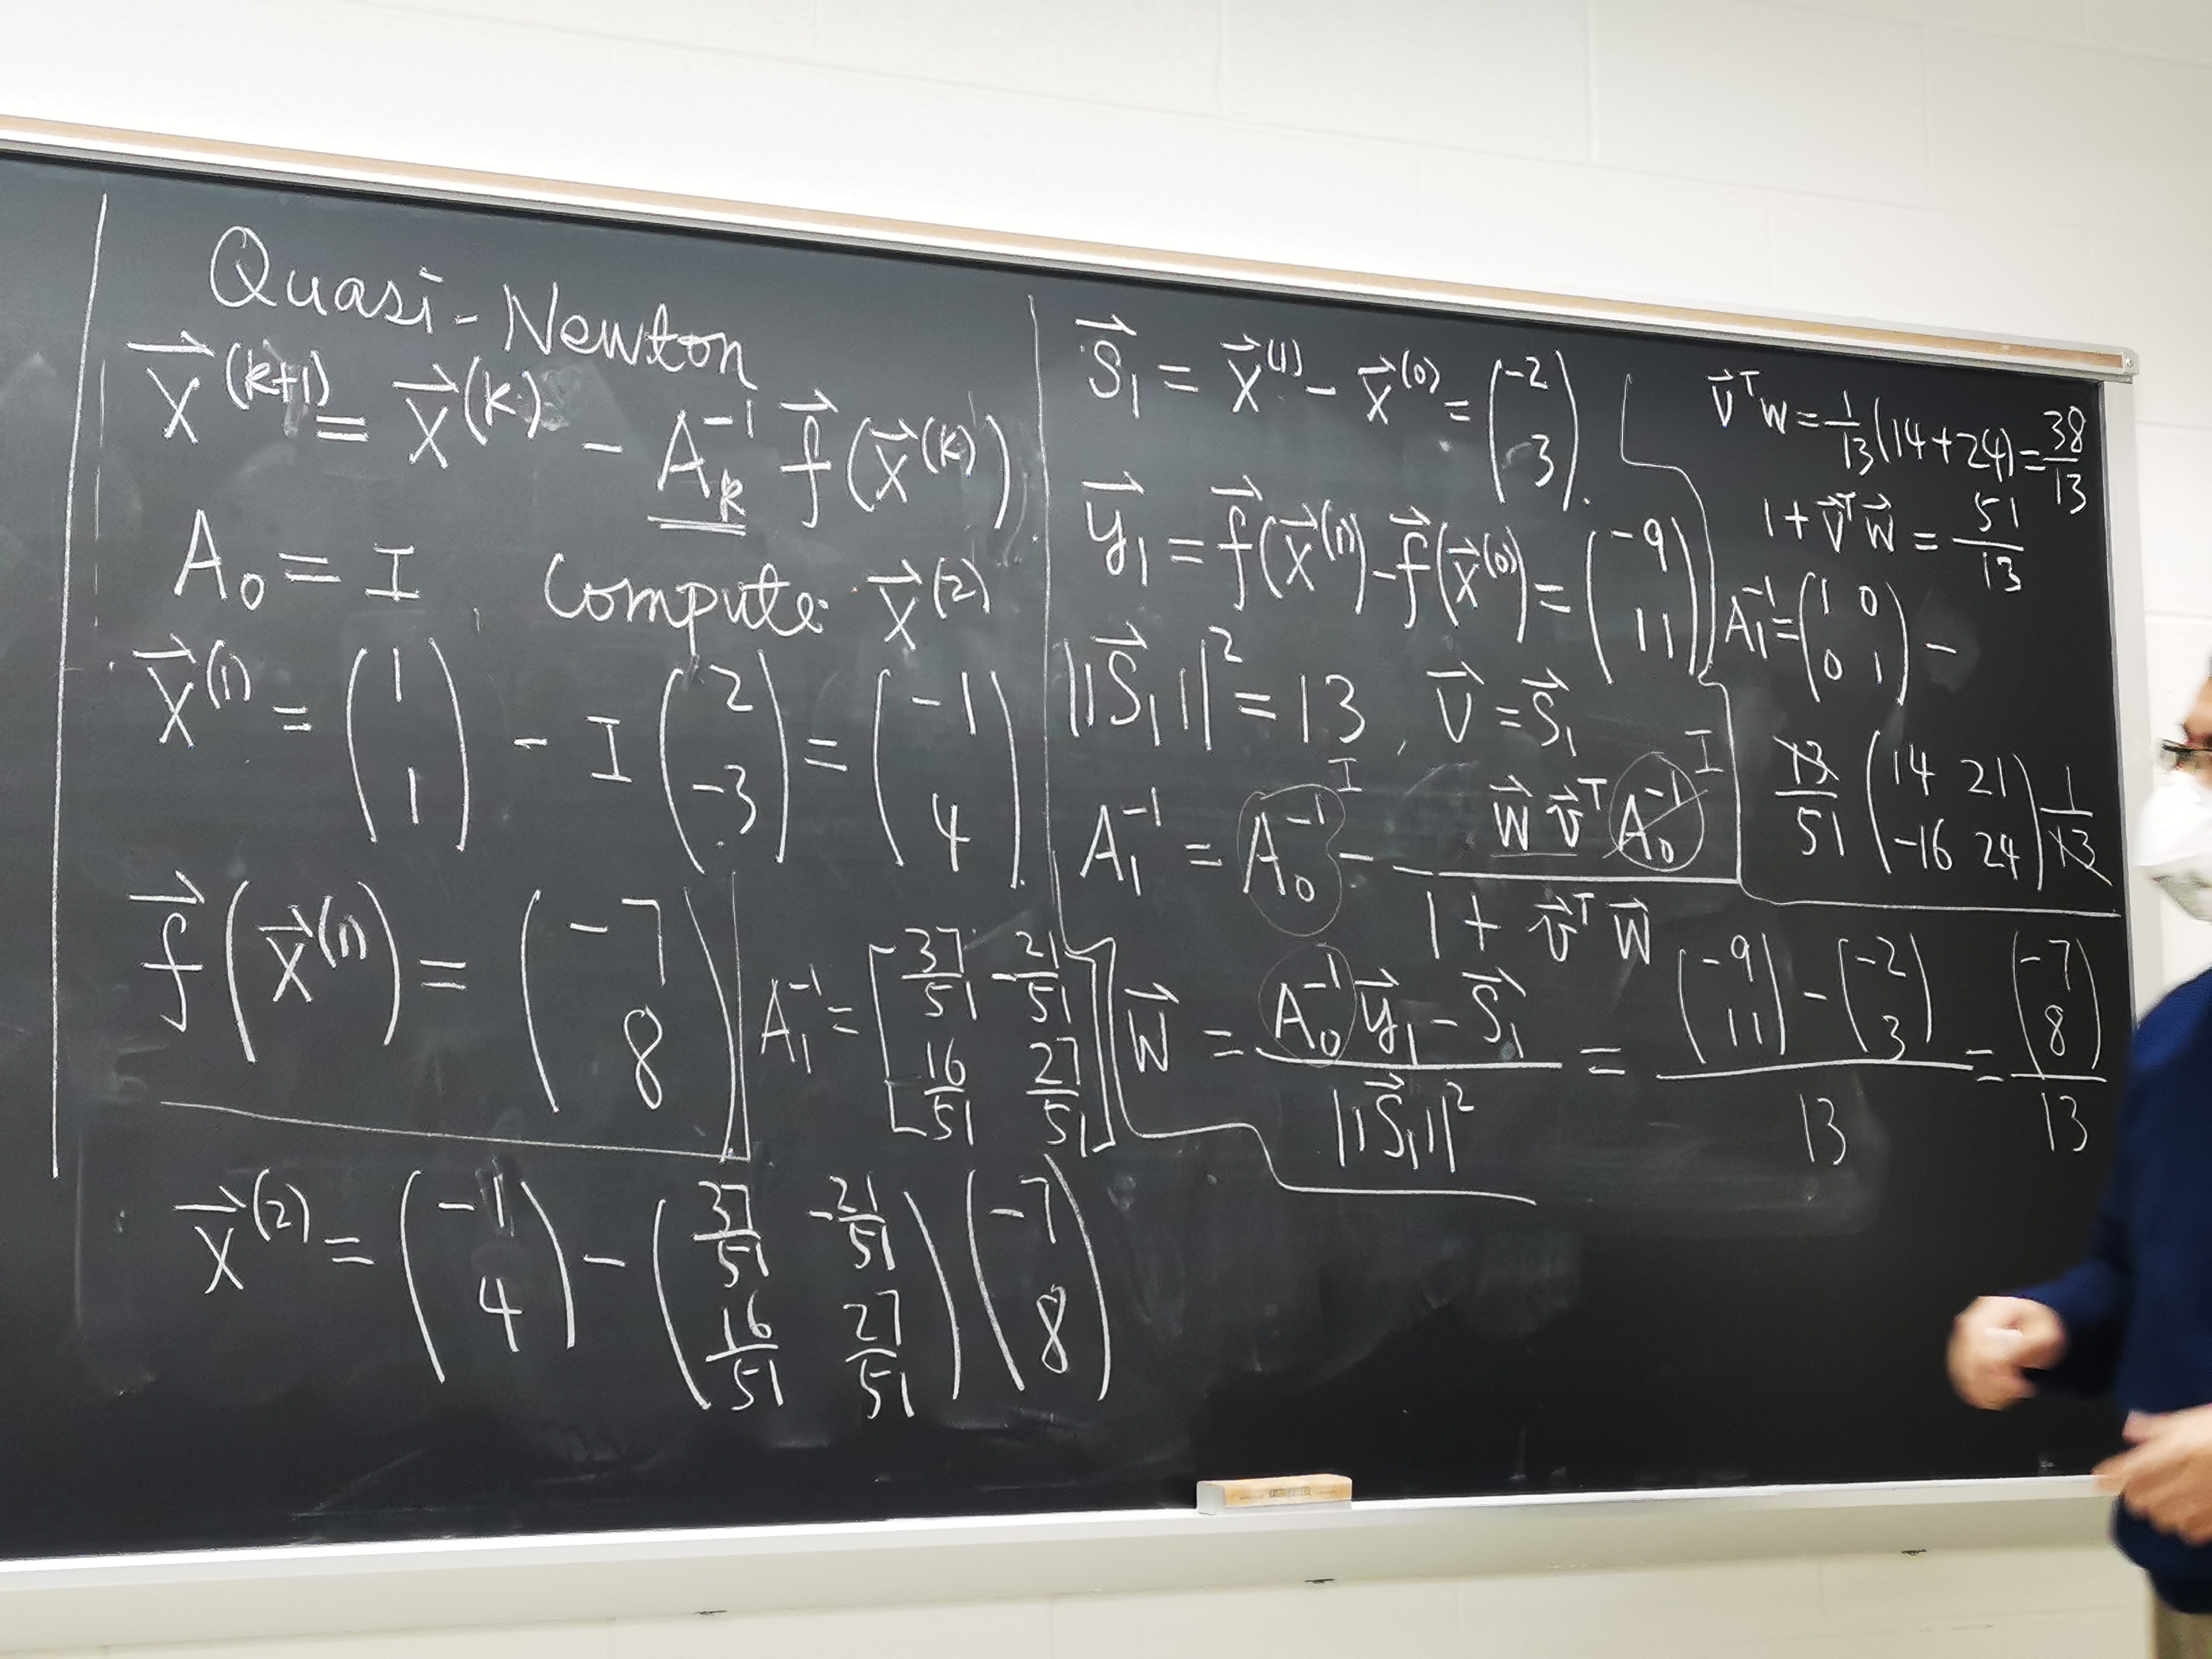 Quasi-Newton
x⃗^(k+1) = x⃗^(k) - A_k^-1 f⃗(x⃗^(k))
A_0 = I   Compute x⃗^(2)
x⃗^(1) = (1 1) - I (2 -3) = (-1 4)
f⃗(x⃗^(1)) = (-7 8)
A_1^-1 = [37/51 -21/51
16/51 27/51]
x⃗^(2) = (-1 4) - (37/51 -21/51
16/51 27/51) (-7 8)
S⃗_1 = x⃗^(1) - x⃗^(0) = (-2 3).
y⃗_1 = f⃗(x⃗^(1)) - f⃗(x⃗^(0)) = (-9 11)
||S⃗_1||^2 = 13, v⃗ = S⃗_1
I I
A_1^-1 = A_0^-1 - w⃗ v⃗^T A_0^-1 / 1 + v⃗^T w⃗
w⃗ = A_0^-1 y⃗_1 - S⃗_1 / ||S⃗_1||^2 = (-9 11) - (-2 3) / 13 = (-7 8) / 13
v⃗^T w = 1/13 (14+24) = 38/13
1 + v⃗^T w⃗ = 51/13
A_1^-1 = (1 0
0 1) -
13/51 (14 21
-16 24) 1/13